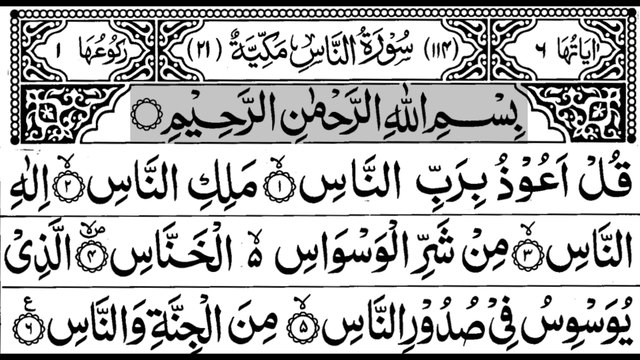 اٰيَاتُهَا ٦ (١١٤) سُوْرَةُ النَّاسِ مَكِّيَّةٌ (٢١) رُكُوْعُهَا ١
بِسْمِ اللّٰهِ الرَّحْمٰنِ الرَّحِيْمِ ۝
قُلْ اَعُوْذُ بِرَبِّ النَّاسِ ۙ‏﴿١﴾ مَلِكِ النَّاسِ ۙ‏﴿٢﴾ اِلٰهِ
النَّاسِ ۙ‏﴿٣﴾ مِنْ شَرِّ الْوَسْوَاسِ ۙ الْخَنَّاسِ ۪ۙ‏﴿٤﴾ الَّذِیْ
یُوَسْوِسُ فِیْ صُدُوْرِ النَّاسِ ۙ‏﴿٥﴾ مِنَ الْجِنَّةِ وَالنَّاسِ ﴿٦﴾ ع